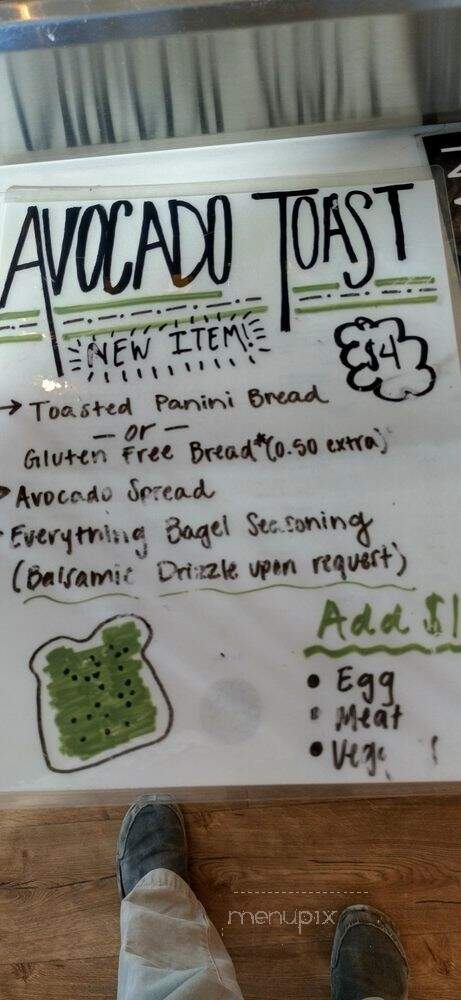 AVOCADO TOAST
NEW ITEM!
$4
→ Toasted Panini Bread
— or —
Gluten Free Bread*(0.50 extra)
Avocado Spread
Everything Bagel Seasoning
(Balsamic Drizzle upon request)
Add $1
• Egg
• Meat
•
menupix